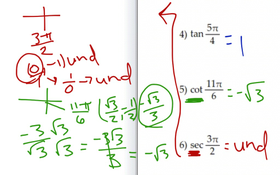 3π/2
(0,-1) und
1/0 → und
11π/6 (√3/2, -1/2) -√3/3
-3/√3 √3/√3 = -3√3/3 = -√3
4) tan 5π/4 = 1
5) cot 11π/6 = -√3
6) sec 3π/2 = und